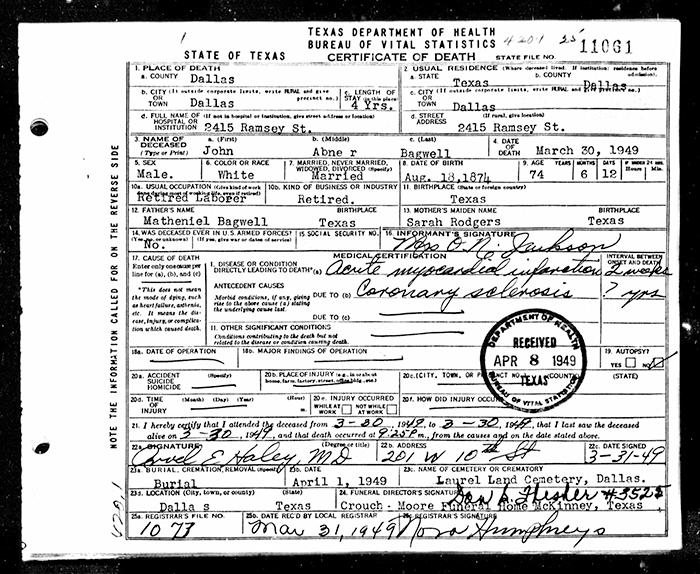 TEXAS DEPARTMENT OF HEALTH
BUREAU OF VITAL STATISTICS
STATE OF TEXAS CERTIFICATE OF DEATH STATE FILE NO. 11061
4201 25
1. PLACE OF DEATH
a. COUNTY Dallas
2. USUAL RESIDENCE (Where deceased lived. If institution: residence before admission).
a. STATE Texas b. COUNTY Dallas
b. CITY (If outside corporate limits, write RURAL and give precinct no.) OR TOWN Dallas
c. LENGTH OF STAY (in this place) 4 Yrs.
c. CITY (If outside corporate limits, write RURAL and give precinct no.) OR TOWN Dallas
d. FULL NAME OF (If not in hospital or institution, give street address or location) HOSPITAL OR INSTITUTION 2415 Ramsey St.
d. STREET ADDRESS (If rural, give location) 2415 Ramsey St.
3. NAME OF DECEASED (Type or Print) a. (First) John b. (Middle) Abne r c. (Last) Bagwell
4. DATE OF DEATH March 30, 1949
5. SEX Male. 6. COLOR OR RACE White 7. MARRIED, NEVER MARRIED, WIDOWED, DIVORCED (Specify) Married
8. DATE OF BIRTH Aug. 18,1874 9. AGE YEARS 74 MONTHS 6 DAYS 12 IF UNDER 24 HRS. Hours Min.
10a. USUAL OCCUPATION (Give kind of work done during most of working life, even if retired) Retired Laborer
10b. KIND OF BUSINESS OR INDUSTRY Retired. 11. BIRTHPLACE (State or foreign country) Texas
12. FATHER'S NAME Matheniel Bagwell BIRTHPLACE Texas
13. MOTHER'S MAIDEN NAME Sarah Rodgers BIRTHPLACE Texas
14. WAS DECEASED EVER IN U.S. ARMED FORCES? (Yes, no, or unknown) (If yes, give war or dates of service) No.
15. SOCIAL SECURITY NO. 16. INFORMANT'S SIGNATURE Mrs O. N. Jackson
MEDICAL CERTIFICATION
17. CAUSE OF DEATH
Enter only one cause per line for (a), (b), and (c)
*This does not mean the mode of dying, such as heart failure, asthenia, etc. It means the disease, injury, or complication which caused death.
I. DISEASE OR CONDITION DIRECTLY LEADING TO DEATH* (a) Acute myocardial infarction
INTERVAL BETWEEN ONSET AND DEATH 2 weeks
ANTECEDENT CAUSES
Morbid conditions, if any, giving rise to the above cause (a) stating the underlying cause last.
DUE TO (b) Coronary sclerosis ? yrs
DUE TO (c)
II. OTHER SIGNIFICANT CONDITIONS
Conditions contributing to the death but not related to the disease or condition causing death.
DEPARTMENT OF HEALTH
RECEIVED
APR 8 1949
TEXAS
BUREAU OF VITAL STATISTICS
18a. DATE OF OPERATION 18b. MAJOR FINDINGS OF OPERATION
19. AUTOPSY? YES NO
20a. ACCIDENT SUICIDE HOMICIDE (Specify)
20b. PLACE OF INJURY (e.g., in or about home, farm, factory, street, office bldg., etc.)
20c. (CITY, TOWN, OR PRECINCT NO.) (COUNTY) (STATE)
20d. TIME OF INJURY (Month) (Day) (Year) (Hour) m.
20e. INJURY OCCURRED WHILE AT WORK NOT WHILE AT WORK 20f. HOW DID INJURY OCCUR?
21. I hereby certify that I attended the deceased from 3-30, 1949, to 3-30, 1949, that I last saw the deceased
alive on 3-30, 1949, and that death occurred at 9:25P m., from the causes and on the date stated above.
22a. SIGNATURE (Degree or title) E Haley, MD 22b. ADDRESS 201 W 10th St 22c. DATE SIGNED 3-31-49
23a. BURIAL, CREMATION, REMOVAL (Specify) Burial 23b. DATE April 1, 1949
23c. NAME OF CEMETERY OR CREMATORY Laurel Land Cemetery, Dallas.
23d. LOCATION (City, town, or county) (State) Dalla s Texas
24. FUNERAL DIRECTOR'S SIGNATURE #3525
Crouch- Moore Funeral Home McKinney, Texas
25a. REGISTRAR'S FILE NO. 1073 25b. DATE REC'D BY LOCAL REGISTRAR Mar 31, 1949
25c. REGISTRAR'S SIGNATURE Nora Humphreys
NOTE THE INFORMATION CALLED FOR ON THE REVERSE SIDE